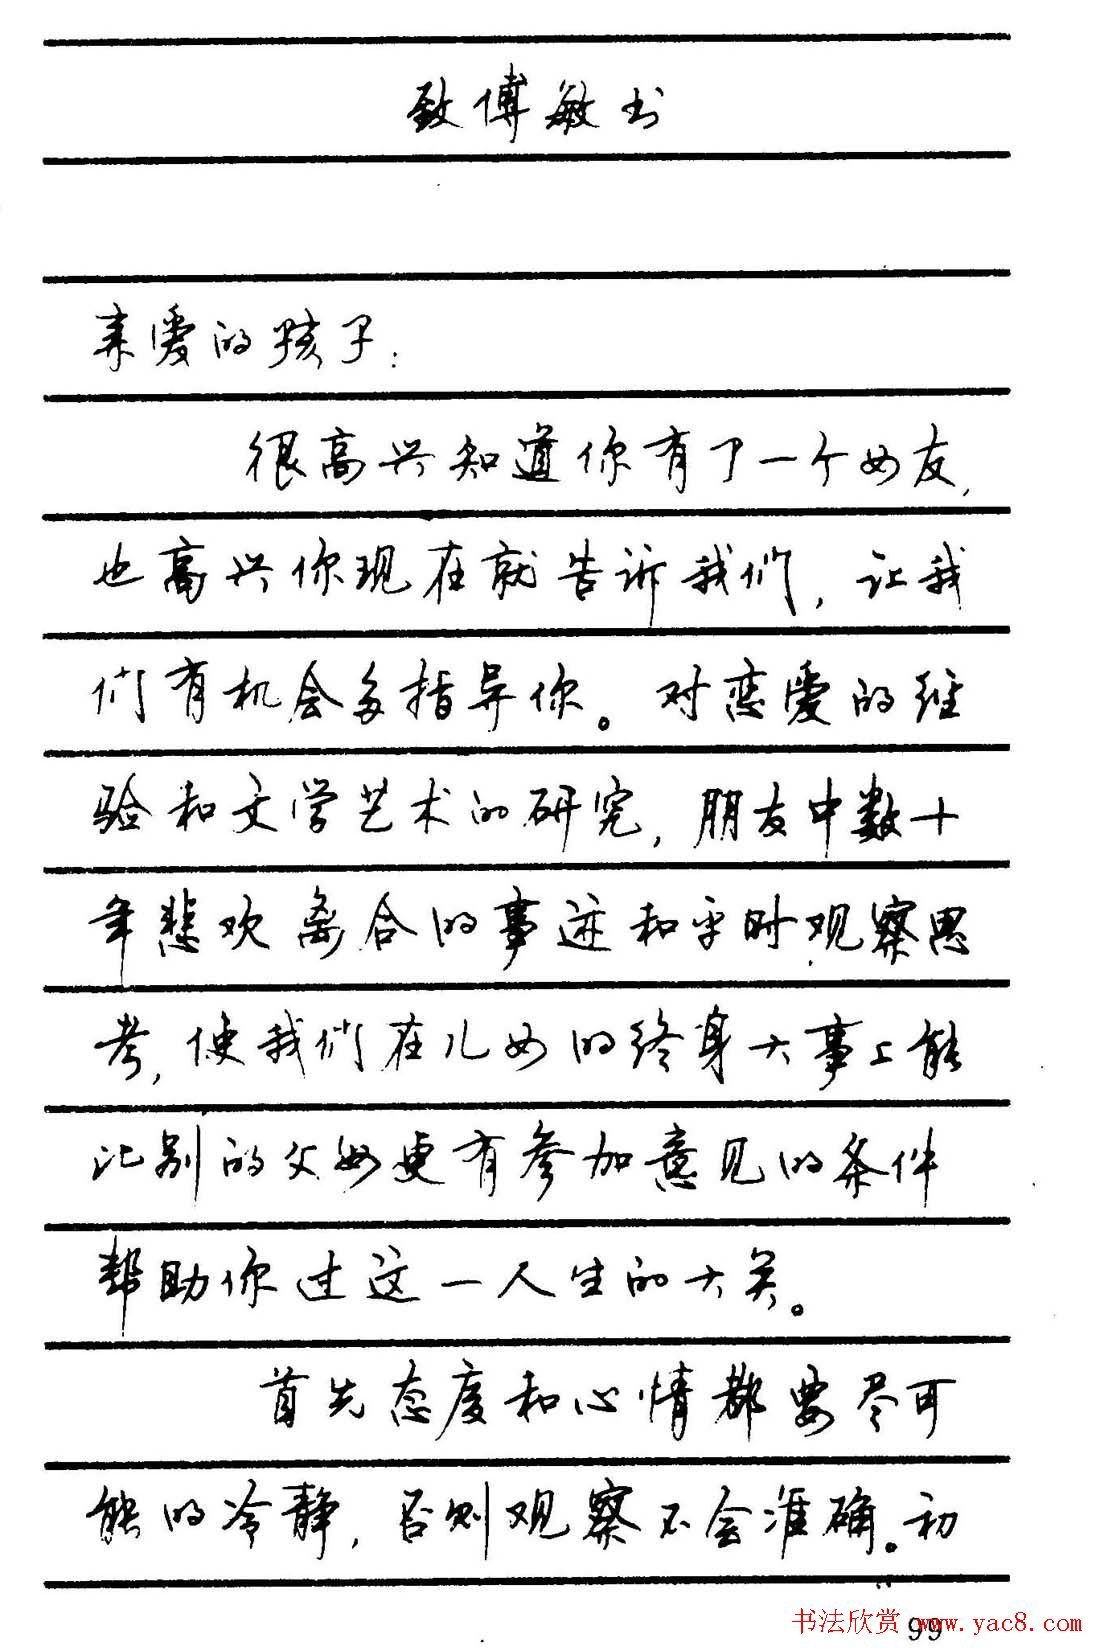 致傅敏书
亲爱的孩子:
很高兴知道你有了一个女友,
也高兴你现在就告诉我们,让我
们有机会多指导你。对恋爱的经
验和文学艺术的研究,朋友中数十
年悲欢离合的事迹和平时观察思
考,使我们在儿女的终身大事上能
比别的父母更有参加意见的条件
帮助你过这一人生的大关。
首先态度和心情都要尽可
能的冷静,否则观察不会准确。初
99
书法欣赏 www.yac8.com